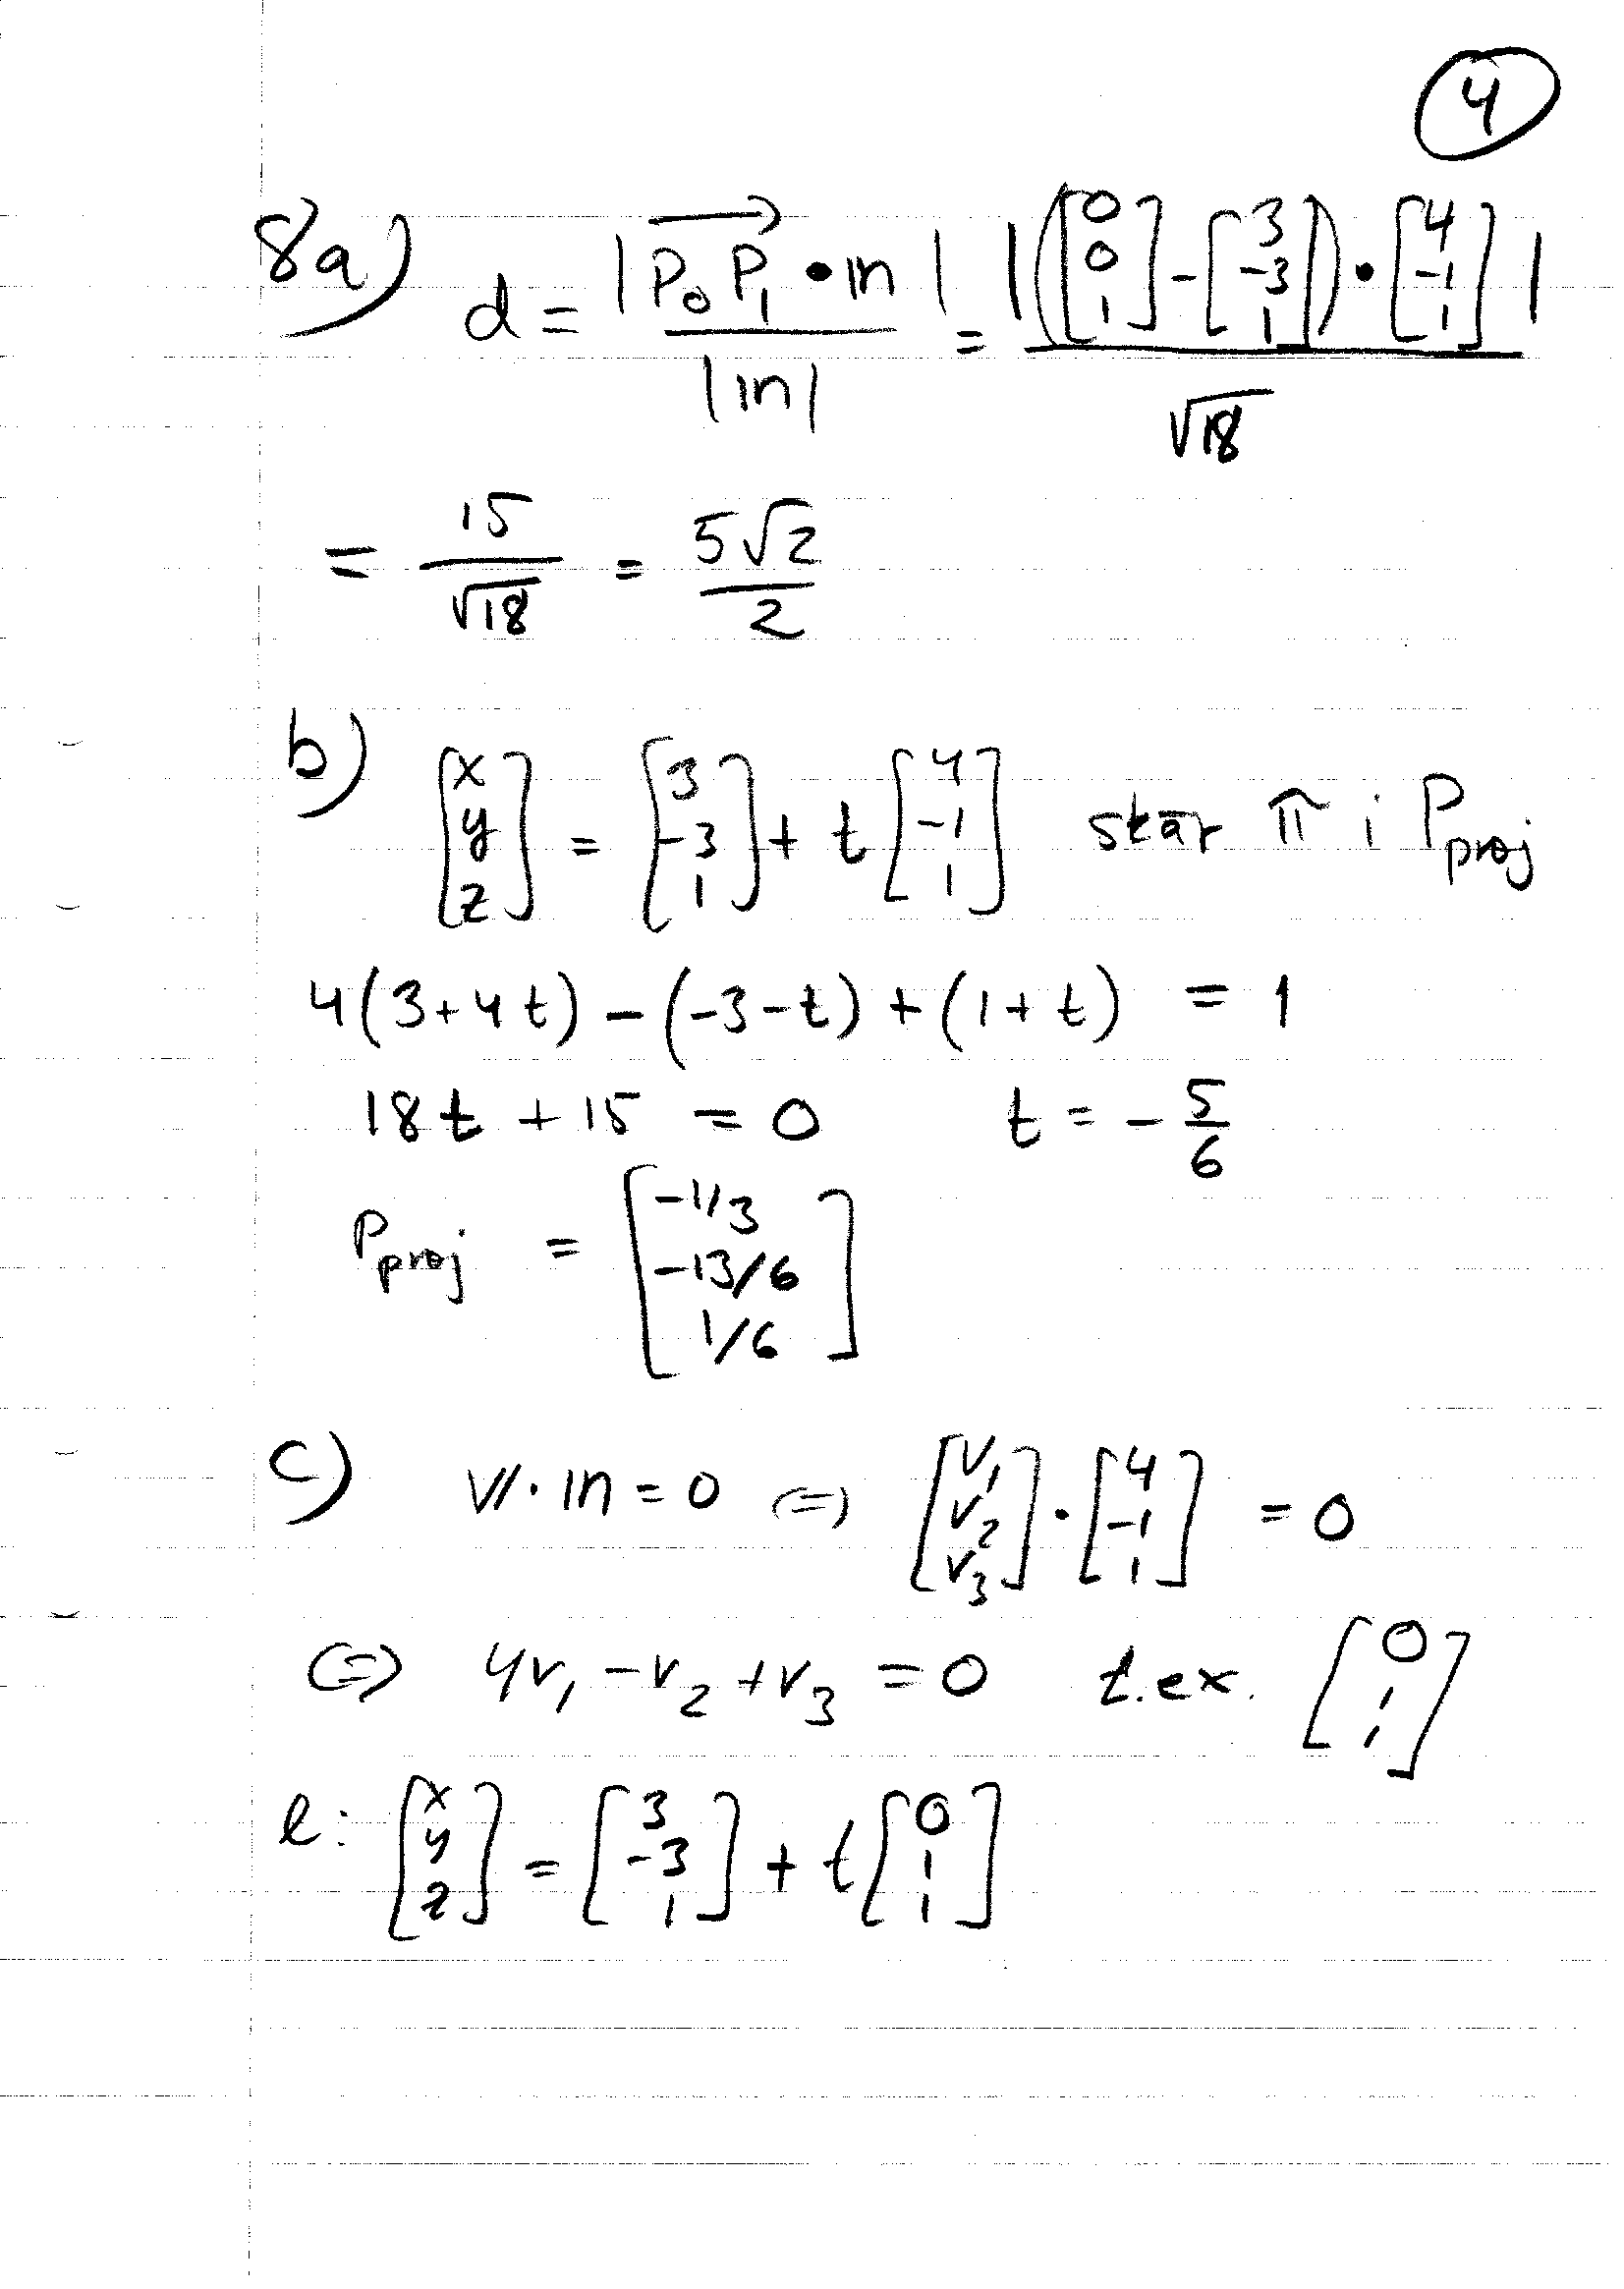 4
8a) d = |P₀P₁ • n| / |n| = |([0 0 1] - [3 -3 1]) • [4 -1 1]| / √18
= 15/√18 = 5√2/2
b) [x y z] = [3 -3 1] + t [4 -1 1] skär π i P_proj
4(3+4t) - (-3-t) + (1+t) = 1
18t + 15 = 0 t = -5/6
P_proj = [-1/3 -13/6 1/6]
c) v · n = 0 (=) [v₁ v₂ v₃] · [4 -1 1] = 0
(=) 4v₁ - v₂ + v₃ = 0 t.ex. [0 1 1]
l: [x y z] = [3 -3 1] + t [0 1 1]